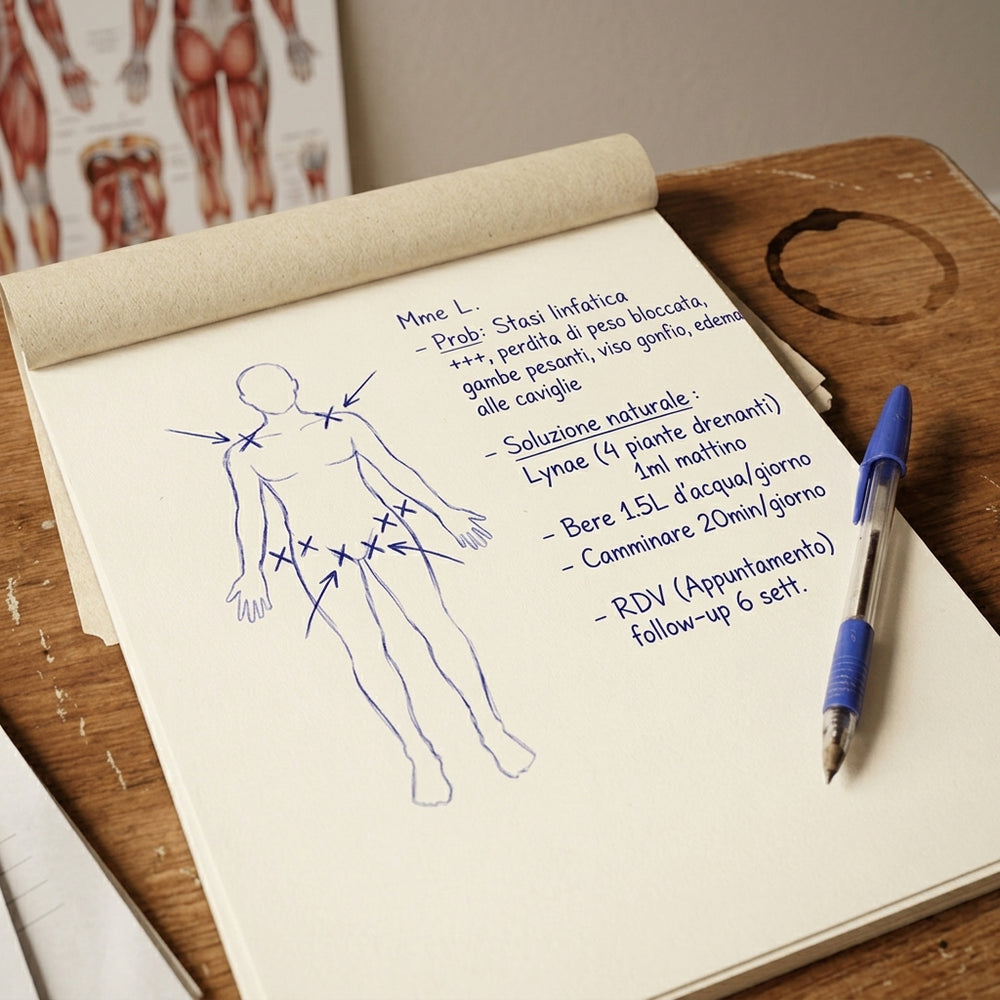 Mme L.
- Prob: Stasi linfatica
+++, perdita di peso bloccata,
gambe pesanti, viso gonfio, edema
alle caviglie
- Soluzione naturale:
Lynae (4 piante drenanti)
1ml mattino
- Bere 1.5L d'acqua/giorno
- Camminare 20min/giorno
- RDV (Appuntamento)
follow-up 6 sett.